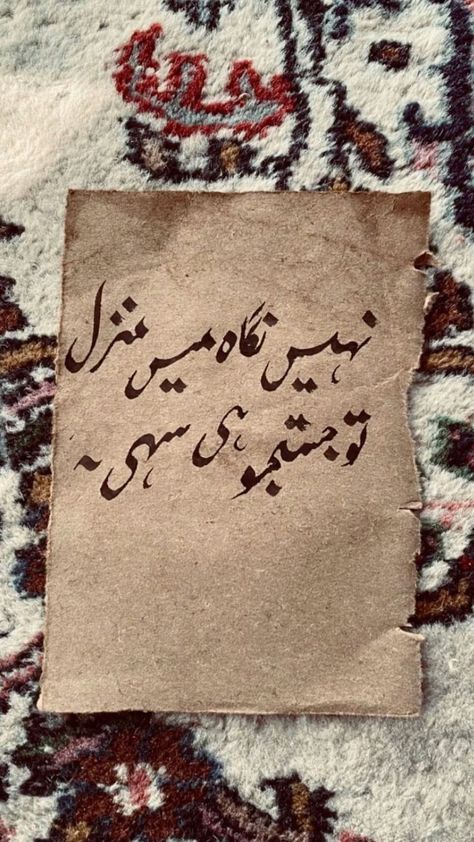 نہیں نگاہ میں منزل
تو جستجو ہی سہی ۔